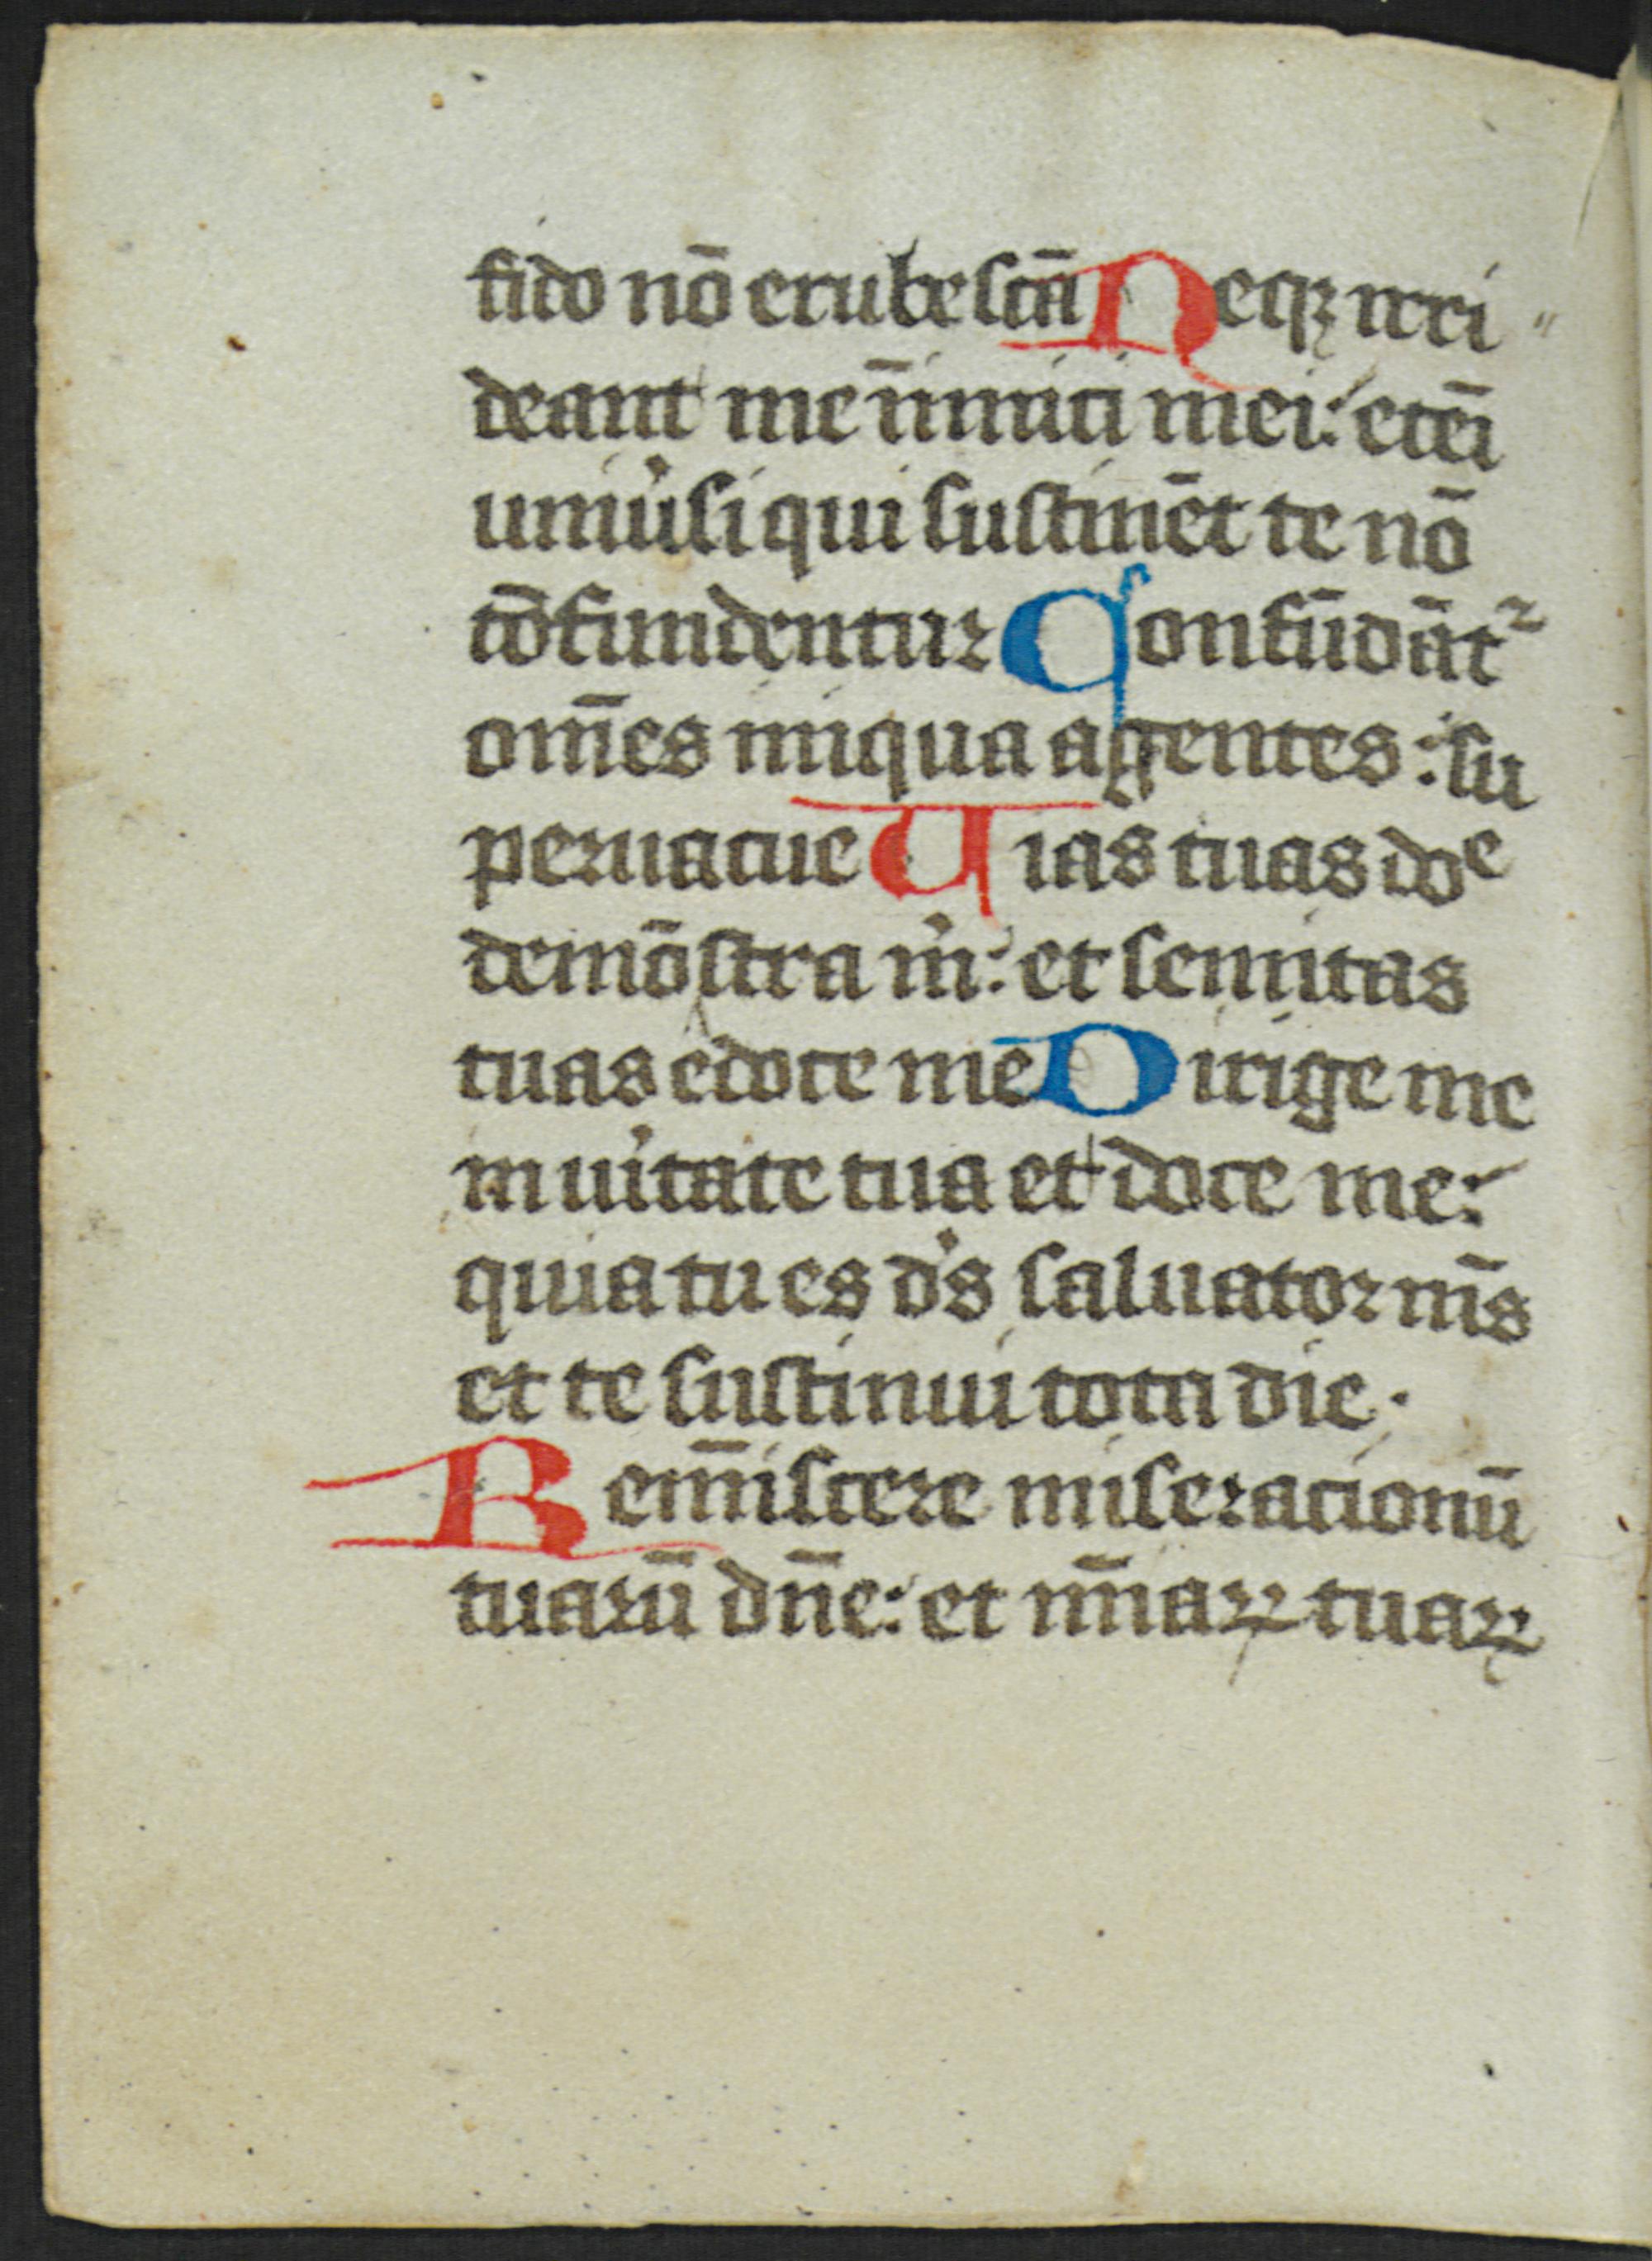 fido nō erubescā Neqꝫ irri"
deant me īimici mei: etēi
uniu᾽si qui sustinēt te nō
cōfundentur Confūdāt᷑
om̄es iniqua agentes: su
peruacue Uias tuas doᵉ
demōstra m᾽: et semitas
tuas edoce me Dirige me
in ui᾽tate tua et doce me:
quia tu es d᾽s saluator m̄s
et te sustinui tota die.
Rem̄iscere miseracionū
tuarū dn̄e: et mīaꝝ tuaꝝ